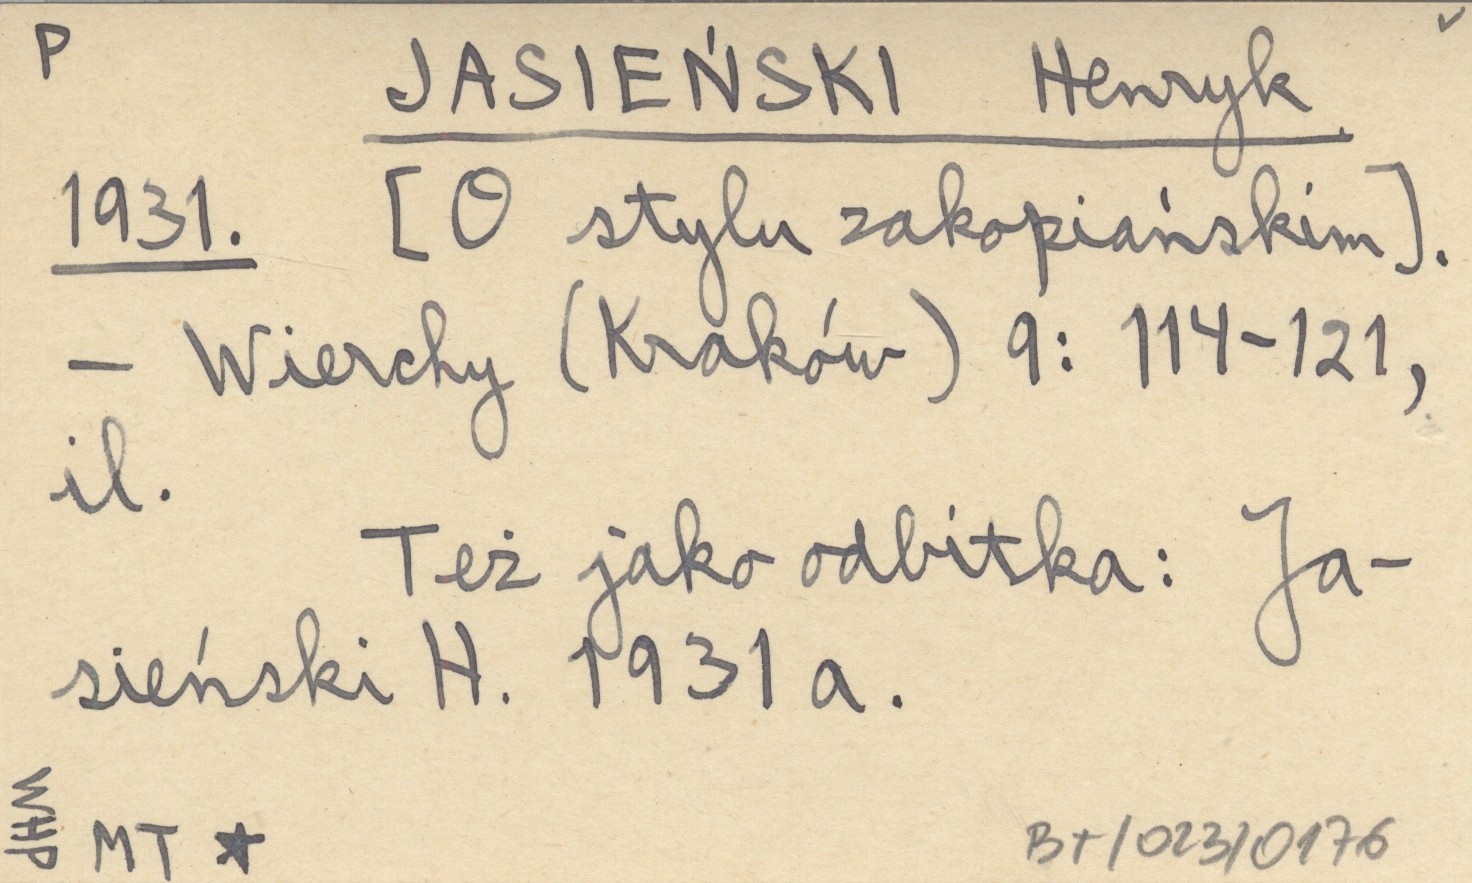 P
JASIEŃSKI Henryk.
1931. [O stylu zakopiańskim].
– Wierchy (Kraków) 9: 114-121,
il.
Też jako odbitka: Ja-
sieński H. 1931a.
WHP
MT ★
BT/023/0176